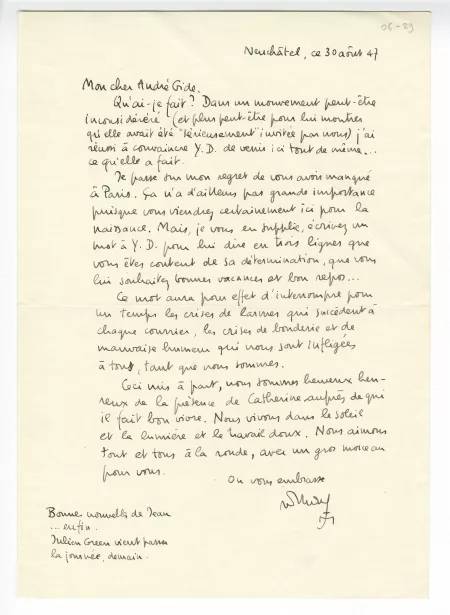 06-29
Neuchâtel, ce 30 août 47
Mon cher André Gide.
Qu'ai-je fait? Dans un mouvement peut-être
inconsidéré (et plus peut-être pour lui montrer
qu'elle avait été "sérieusement" invitée par nous) j'ai
réussi à convaincre Y.D. de venir ici tout de même...
ce qu'elle a fait.
Je passe sur mon regret de vous avoir manqué
à Paris. Ça n'a d'ailleurs pas grande importance
puisque vous viendrez certainement ici pour la
naissance. Mais, je vous en supplie, écrivez un
mot à Y.D. pour lui dire en trois lignes que
vous êtes content de sa détermination, que vous
lui souhaitez bonnes vacances et bon repos...
Ce mot aura pour effet d'interrompre pour
un temps les crises de larmes qui succèdent à
chaque courrier, les crises de bouderie et de
mauvaise humeur qui nous sont infligées
à tous, tant que nous sommes.
Ceci mis à part, nous sommes heureux heu-
reux de la présence de Catherine auprès de qui
il fait bon vivre. Nous vivons dans le soleil
et la lumière et le travail doux. Nous aimons
tout et tous à la ronde, avec un gros morceau
pour vous.
On vous embrasse
Bonnes nouvelles de Jean
... enfin.
Julien Green vient passer
la journée, demain.